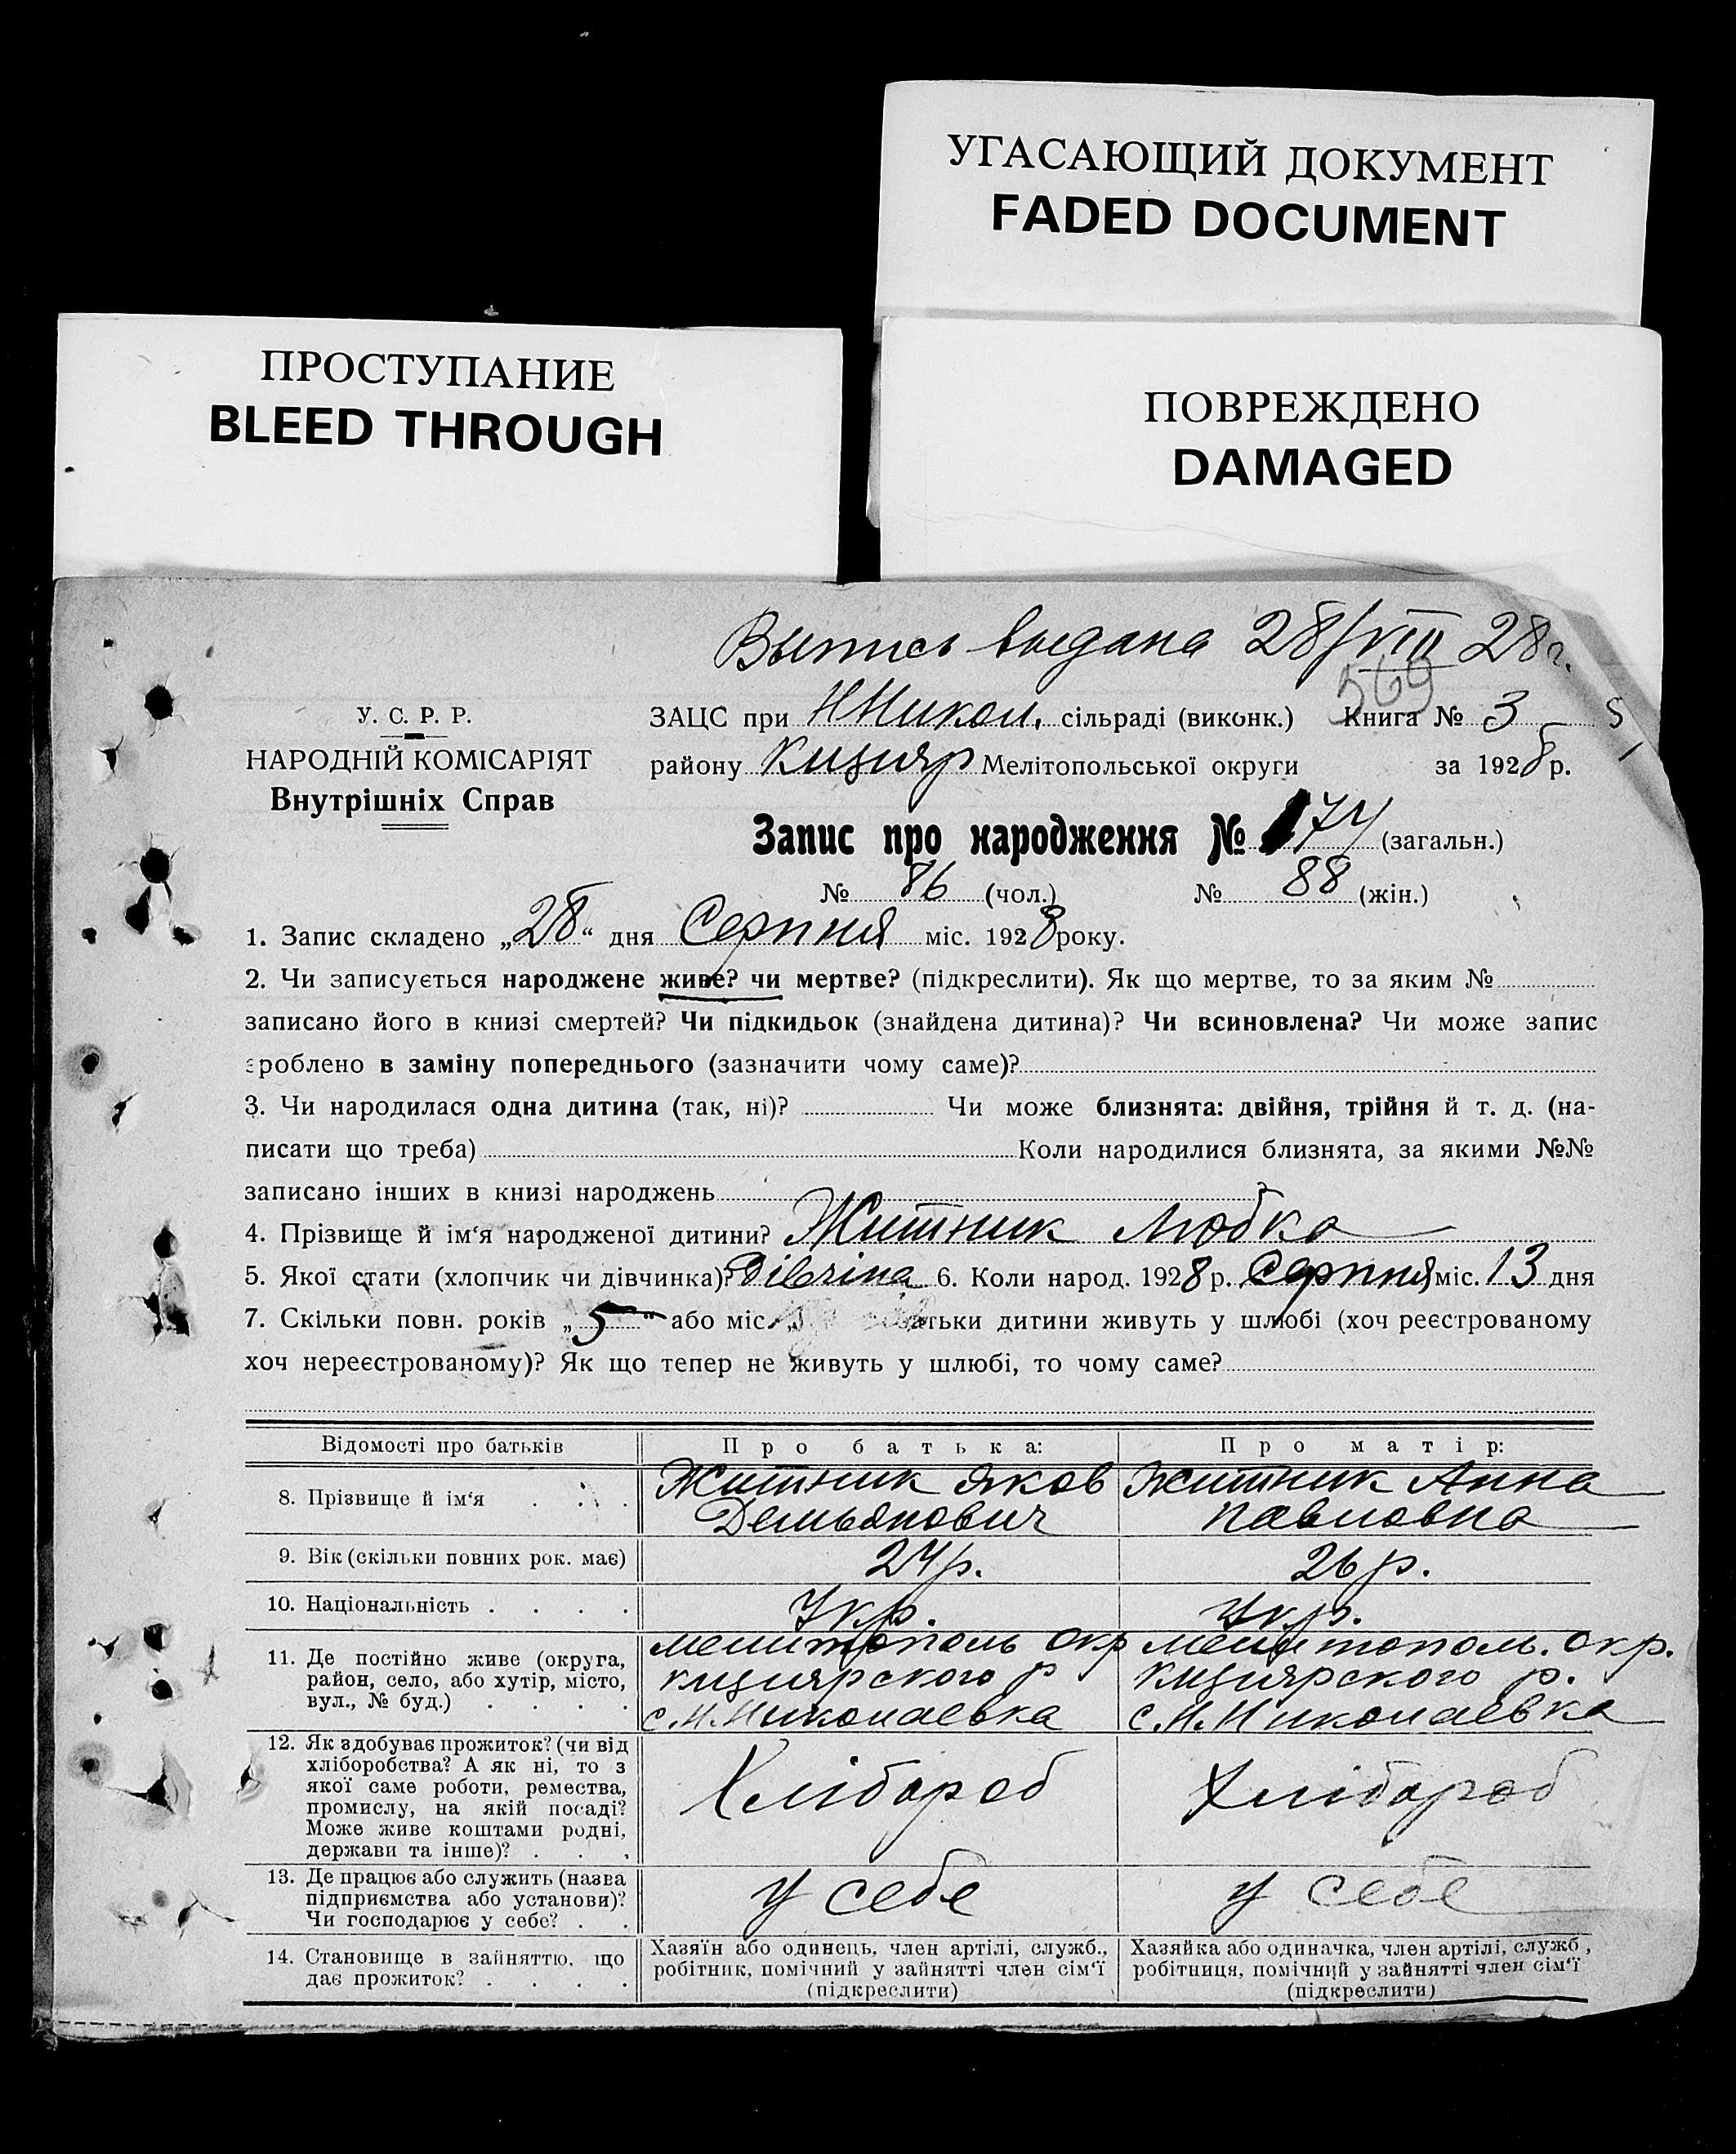 УГАСАЮЩИЙ ДОКУМЕНТ
FADED DOCUMENT
ПРОСТУПАНИЕ
BLEED THROUGH
ПОВРЕЖДЕНО
DAMAGED
Выпись выдана 28/VIII 28 г.
569
У. С. Р. Р.
НАРОДНІЙ КОМІСАРІЯТ
Внутрішніх Справ
ЗАЦС при Н Никол. сільраді (виконк.) Книга № 3
району Кизияр Мелітопольської округи за 1928 р.
Запис про народження № 174 (загальн.)
№ 86 (чол.) № 88 (жін.)
1. Запис складено „28“ дня Серпня міс. 1928 року.
2. Чи записується народжене живе? чи мертве? (підкреслити). Як що мертве, то за яким №
записано його в книзі смертей? Чи підкидьок (знайдена дитина)? Чи всиновлена? Чи може запис
зроблено в заміну попереднього (зазначити чому саме)?
3. Чи народилася одна дитина (так, ні)? Чи може близнята: двійня, трійня й т. д. (на-
писати що треба) Коли народилися близнята, за якими №№
записано інших в книзі народжень ?
4. Прізвище й ім‘я народженої дитини? Житник Любка
5. Якої стати (хлопчик чи дівчинка)? Дівчина 6. Коли народ. 1928 р. Серпня міс. 13 дня
7. Скільки повн. років „5“ або міс. атьки дитини живуть у шлюбі (хоч реєстрованому
хоч нереєстрованому)? Як що тепер не живуть у шлюбі, то чому саме?
Відомості про батьків Про батька: Про матір:
8. Прізвище й ім‘я . . . Житник Яков Житник Анна
Демьянович Павловна
9. Вік (скільки повних рок. має) 24 р. 26 р.
10. Національність . . . . Укр. Укр.
11. Де постійно живе (округа, Мелитополь окр Мелитополь. окр.
район, село, або хутір, місто, Кизиярского р Кизиярского р.
вул., № буд.) . . . . с. Н. Николаевка с. Н. Николаевка
12. Як здобуває прожиток? (чи від
хліборобства? А як ні, то з
якої саме роботи, ремества,
промислу, на якій посаді?
Може живе коштами родні,
держави та інше)? . . .
Хлібороб Хлібороб
13. Де працює або служить (назва
підприємства або установи)?
Чи господарює у себе? . .
у себе у себе
14. Становище в зайняттю, що
дає прожиток? . . . .
Хазяїн або одинець, член артілі, служб.,
робітник, помічний у зайнятті член сім‘ї
(підкреслити)
Хазяйка або одиначка, член артілі, служб.,
робітниця, помічний у зайнятті член сім‘ї
(підкреслити)